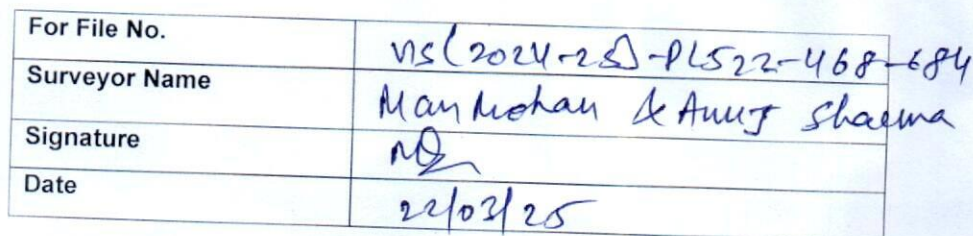 For File No. VIS(2024-25)-PL522-468-684
Surveyor Name Manmohan & Anuj Sharma
Signature
Date 22/03/25